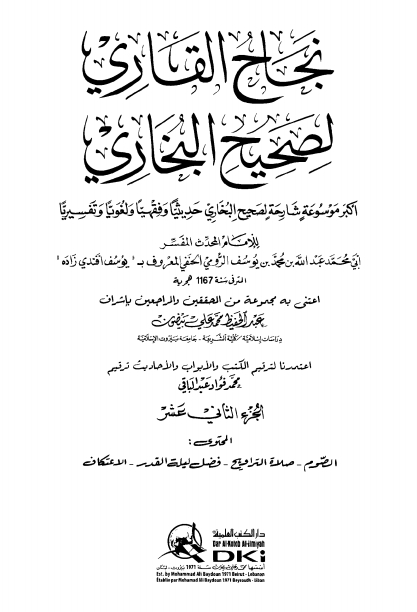 نجاح القاري
لصحيح البخاري
أكبر موسوعة شارحة لصحيح البخاري حديثيًّا وفقهيًّا ولغويًّا وتفسيريًّا
للإمام المحدث المفسر
أبي محمد عبد الله بن محمد بن يوسف الرومي الحنفي المعروف بـ "يوسف أفندي زاده"
المتوفى سنة 1167 هجرية
اعتنى به مجموعة من المحققين والمراجعين بإشراف
عبد الحفيظ محمد علي بيضون
دراسات إسلامية كلية الشريعة - جامعة بيروت الإسلامية
اعتمدنا لترقيم الكتب والأبواب والأحاديث ترقيم
محمد فؤاد عبد الباقي
الجزء الثاني عشر
المحتوى:
الصوم - صلاة التراويح - فضل ليلة القدر - الاعتكاف
دار الكتب العلمية
Dar Al-Kotob Al-ilmiyah
DKi
أسسها محمد علي بيضون سنة 1971 بيروت - لبنان
Est. by Mohammad Ali Baydoun 1971 Beirut - Lebanon
Établie par Mohamad Ali Baydoun 1971 Beyrouth - Liban